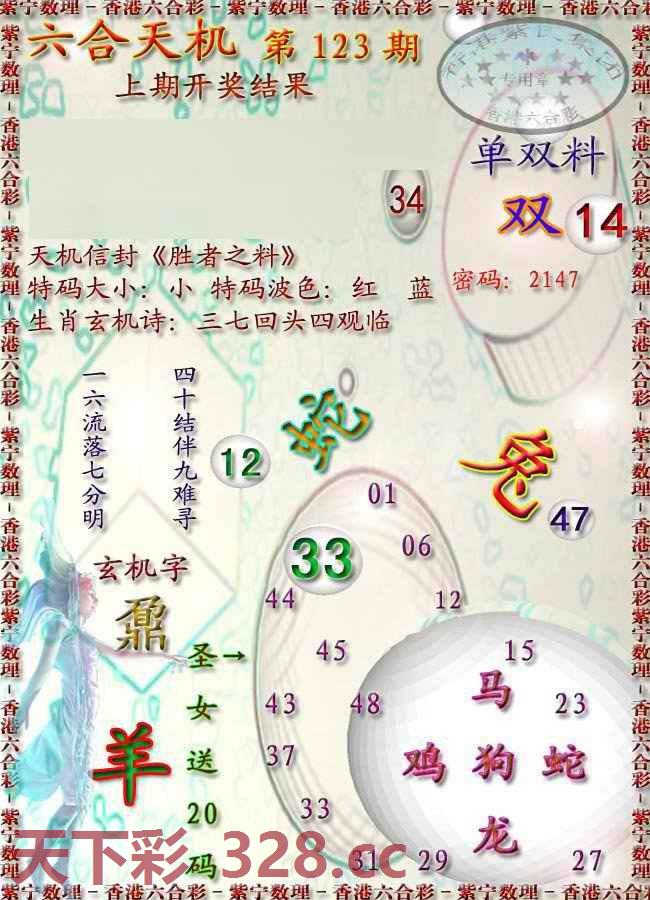 紫宁数理－香港六合彩－紫宁数理－香港六合彩－紫宁数理－香港六合彩－紫宁数理
六合天机 第 123 期
上期开奖结果
专用章
香港六合彩
单双料
34
双 14
天机信封《胜者之料》
特码大小：小 特码波色：红 蓝
密码：2147
生肖玄机诗：三七回头四观临
四十结伴九难寻
一六流落七分明
12
蛇
兔
47
01
33
06
44
12
玄机字
鼐
45
15
圣女送20码
→
43
48
马
23
羊
37
鸡 狗 蛇
33
龙
31
29
27
天下彩.328.cc
紫宁数理－香港六合彩－紫宁数理－香港六合彩－紫宁数理－香港六合彩－紫宁数理